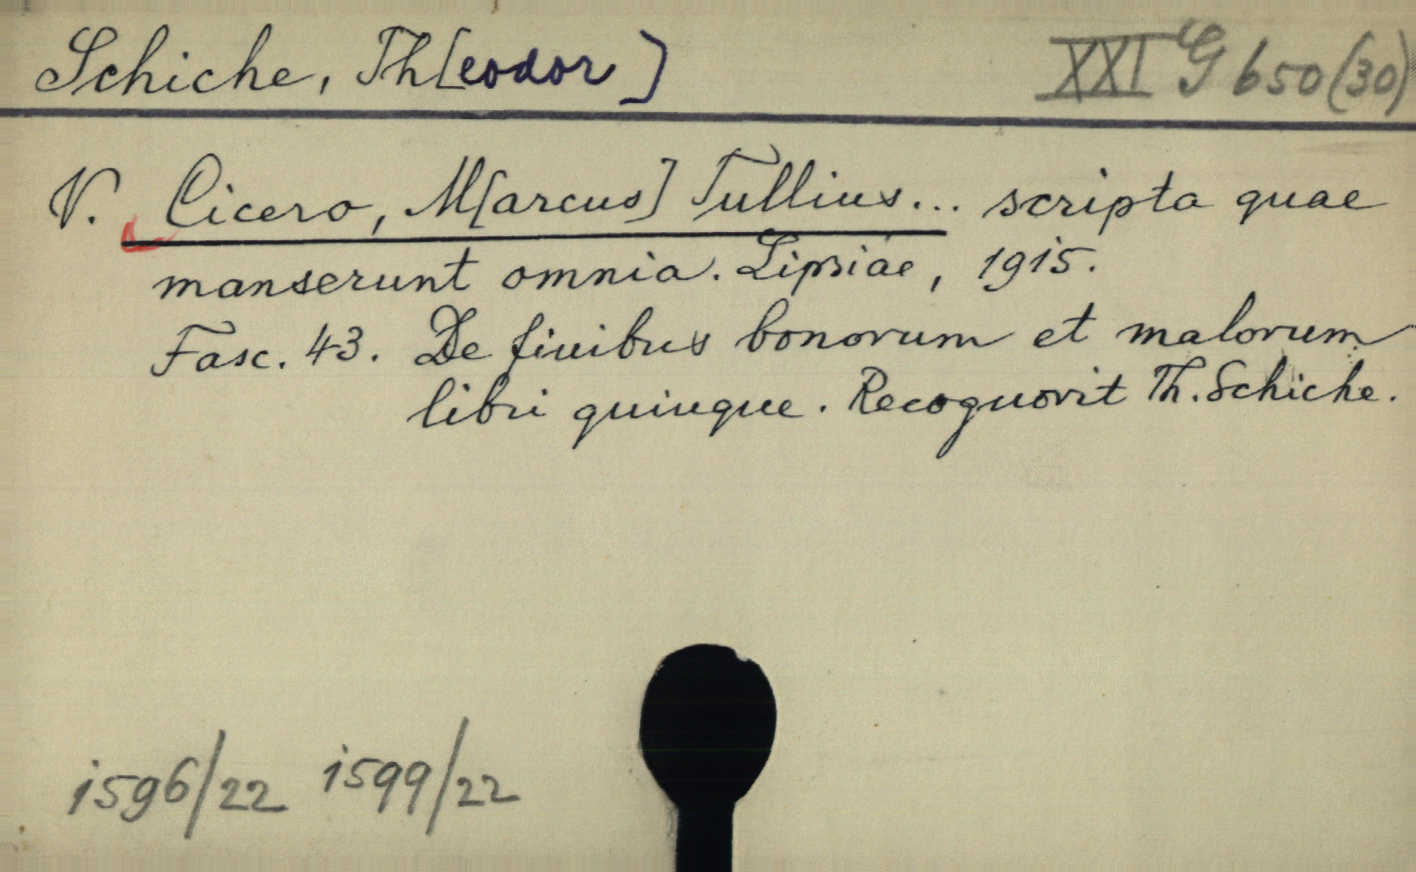 Schiche, Th[eodor]
XXI G 650(30)
V. Cicero, M[arcus] Tullius... scripta quae
manserunt omnia. Lipsiae, 1915.
Fasc. 43. De finibus bonorum et malorum
libri quinque. Recognovit Th. Schiche.
1596/22 1599/22